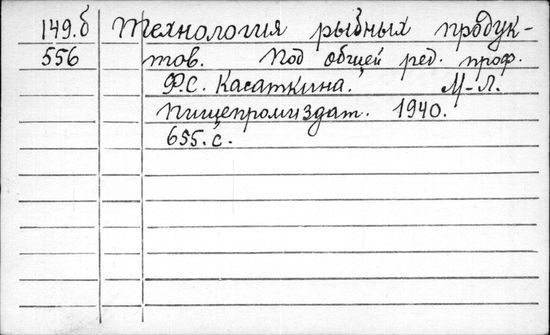 149.б Технология рыбных продук-
556 тов. Под общей ред. проф.
Ф.С. Касаткина. М-Л.
Пищепромиздат. 1940.
655.с.